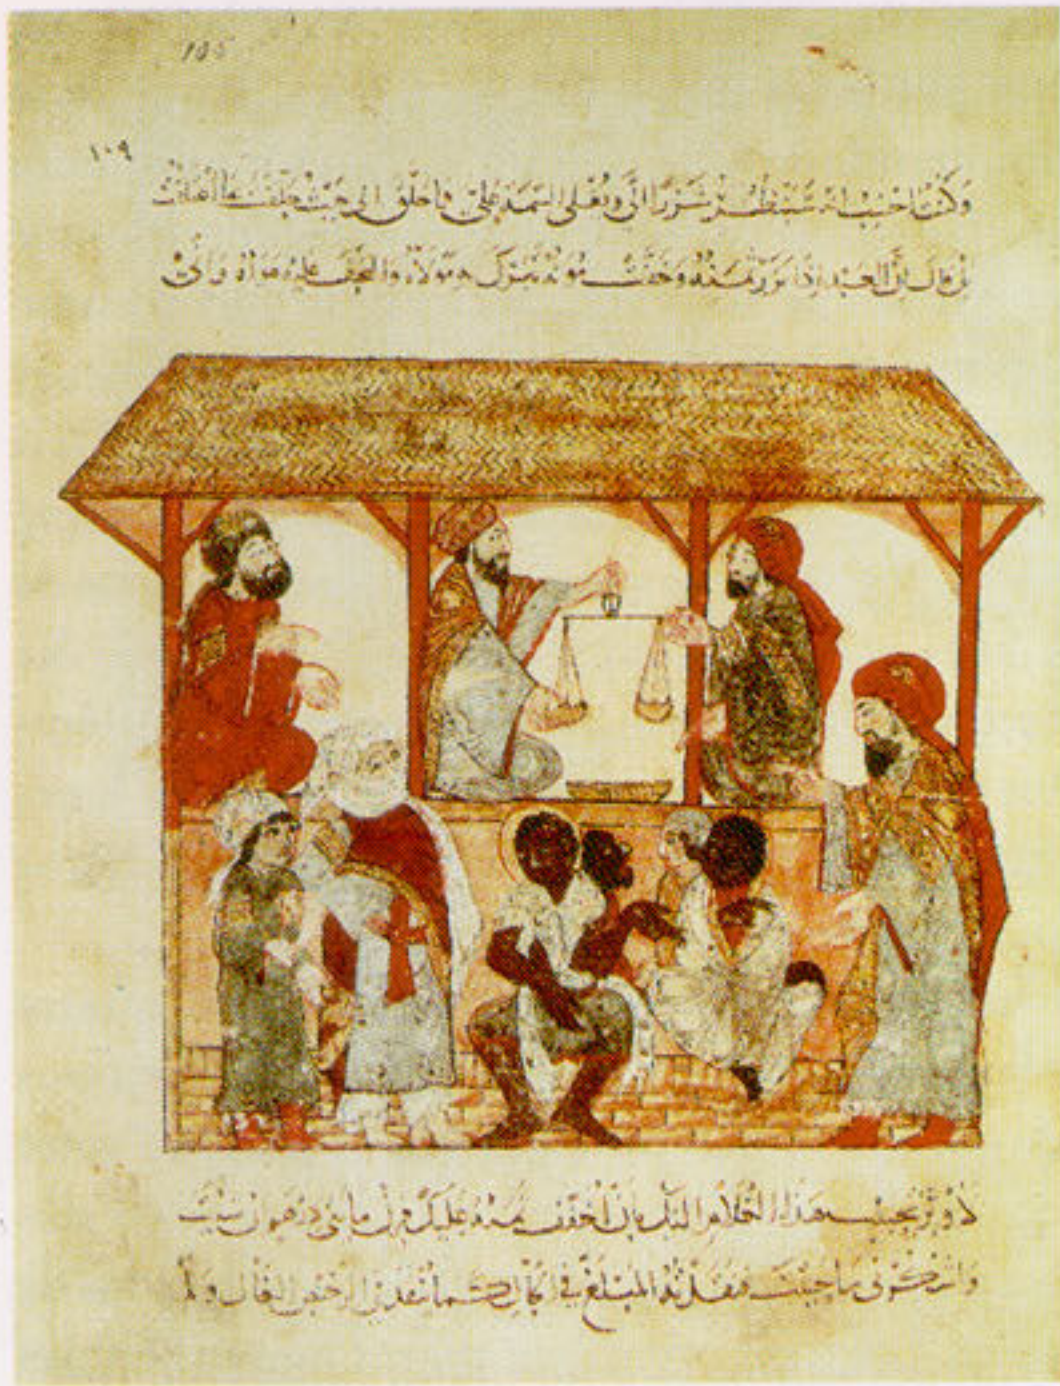 105
١٠٩
وَكُنْتُ احْسِبُ انه سَيَنْظُرُ شَزْرًا الَيَّ ويُغْلى السِّيمَةَ عَليّ فما حَلَّقَ الى حَيْثُ حَلَّقْتُ
بل قال انَّ العَبْدَ اذا نَزُرَ ثمنُهُ وَخَفَّتْ مُؤَنُهُ تَبَرَّكَ به مَوْلاهُ والتحفَ عليه هَواهُ وَانّى
لأوثِرُ تحبيبَ هذا الغُلامِ اليكَ بِأنْ أُخَفِّفَ ثمنهُ عليكَ فزِنْ مائتى دِرْهمٍ ان شئتَ
واشكُرْ لى ما حييتَ فنقدْتُهُ المبْلغَ فى الحال كما يُنقدُ فى الرخيصِ الغال ولم